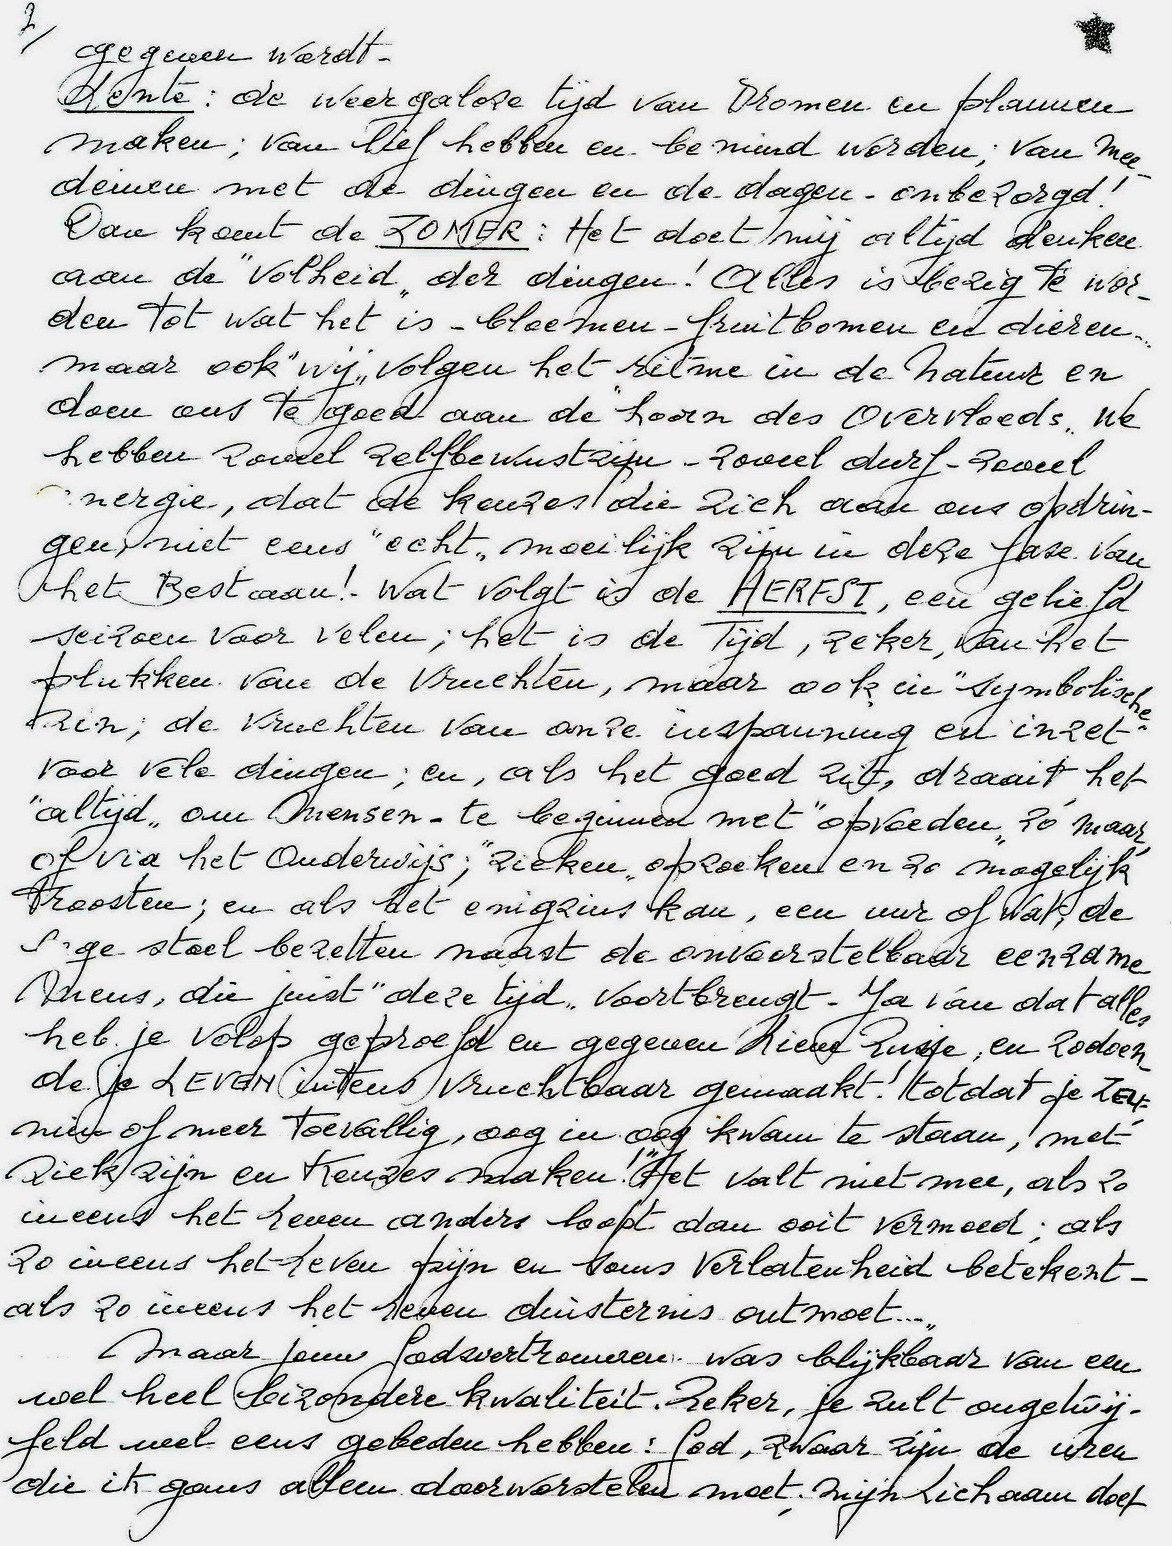 2/
gegeven wordt-
Lente: de weergaloze tijd van Dromen en plannen
maken; van lief hebben en bemind worden; van mee-
deinen met de dingen en de dagen - onbezorgd!
Dan komt de ZOMER: Het doet mij altijd denken
aan de "Volheid" der dingen! Alles is bezig te wor-
den tot wat het is - bloemen - fruitbomen en dieren...
maar ook "wij" volgen het ritme in de Natuur en
doen ons te goed aan de "hoorn des Overvloeds". We
hebben zoveel zelfbewustzijn - zoveel durf - zoveel
nergie, dat de keuzes die zich aan ons opdrin-
gen, niet eens "echt" moeilijk zijn in deze fase van
het Bestaan! - Wat volgt is de HERFST, een geliefd
seizoen voor velen; het is de Tijd, zeker, van het
plukken van de Vruchten, maar ook in "symbolische
zin; de vruchten van onze inspanning en inzet"
voor vele dingen; en, als het goed zit, draait het
"altijd" om Mensen - te beginnen met "opvoeden" zó maar,
of via het Onderwijs; "zieken" opzoeken en zo mogelijk
Troosten; en als het enigzins kan, een uur of wat, de
ge stoel bezetten naast de onvoorstelbaar eenzame
Mens, die juist "deze tijd" voortbrengt - Ja ván dat alles
heb je volop geproefd en gegeven Lieve Zusje, en zodoen
de je LEVEN intens vruchtbaar gemaakt! totdat je
min of meer Toevallig, oog in oog kwam te staan, met
ziek zijn en Keuzes maken! "Het valt niet mee, als zo
ineens het Leven anders loopt dan ooit vermoed; als
zo ineens het Leven pijn en soms Verlatenheid betekent -
als zo ineens het leven duisternis ontmoet...."
Maar jouw Godsvertrouwen was blijkbaar van een
wel heel bizondere kwaliteit. Zeker, je zult ongetwij-
feld wel eens gebeden hebben: God, zwaar zijn de uren
die ik gans alleen doorworstelen moet; mijn Lichaam doet